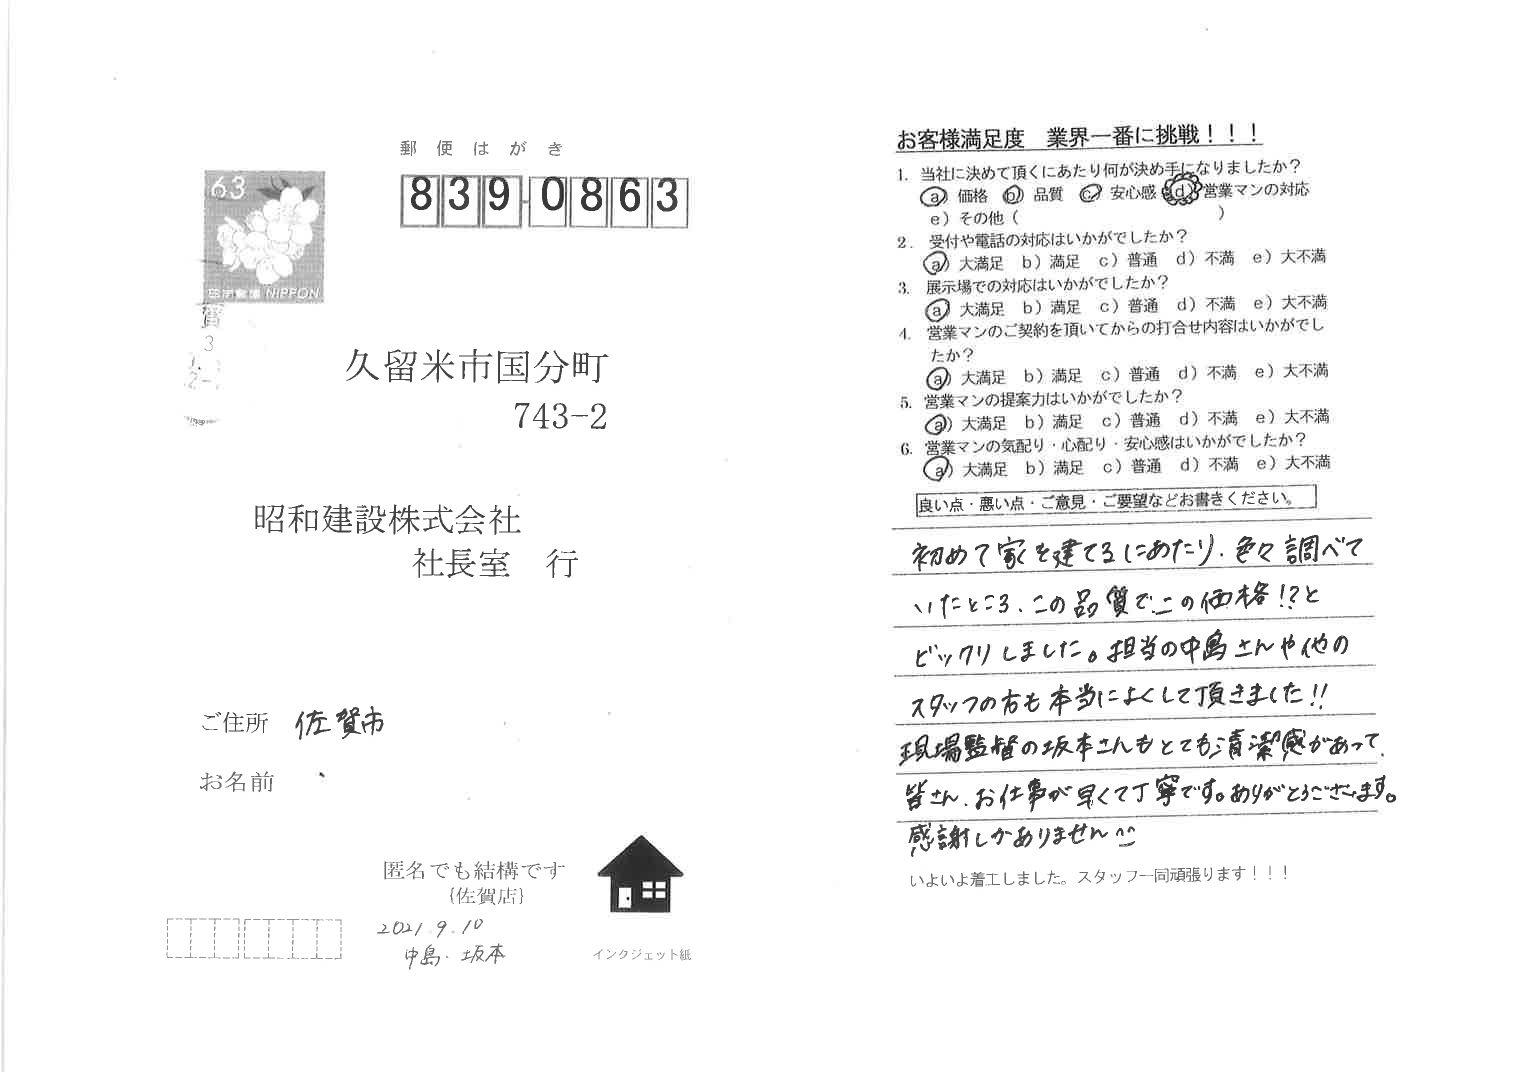 郵便はがき
63
日本郵便 NIPPON
839-0863
賀
3
久留米市国分町
743-2
昭和建設株式会社
社長室　行
ご住所　佐賀市
お名前
匿名でも結構です
{佐賀店}
2021.9.10
中島・坂本
インクジェット紙
お客様満足度　業界一番に挑戦！！！
1. 当社に決めて頂くにあたり何が決め手になりましたか？
a）価格　b）品質　c）安心感　d）営業マンの対応
e）その他（　　　　　　　　　　　　）
2. 受付や電話の対応はいかがでしたか？
a）大満足　b）満足　c）普通　d）不満　e）大不満
3. 展示場での対応はいかがでしたか？
a）大満足　b）満足　c）普通　d）不満　e）大不満
4. 営業マンのご契約を頂いてからの打合せ内容はいかがでし
たか？
a）大満足　b）満足　c）普通　d）不満　e）大不満
5. 営業マンの提案力はいかがでしたか？
a）大満足　b）満足　c）普通　d）不満　e）大不満
6. 営業マンの気配り・心配り・安心感はいかがでしたか？
a）大満足　b）満足　c）普通　d）不満　e）大不満
良い点・悪い点・ご意見・ご要望などお書きください。
初めて家を建てるにあたり、色々調べて
いたところ、この品質でこの価格!?と
ビックリしました。担当の中島さんや他の
スタッフの方も本当によくして頂きました!!
現場監督の坂本さんもとても清潔感があって、
皆さん、お仕事が早くて丁寧です。ありがとうございます。
感謝しかありません^^
いよいよ着工しました。スタッフ一同頑張ります！！！